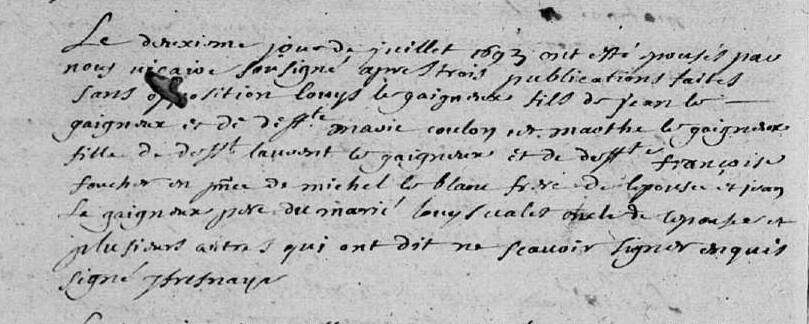 Le deuxiesme jour de juillet 1693 ont esté epousés par
nous vicaire soussigné apres trois publications faites
sans opposition louys le gaigneux fils de jean le
gaigneux et de deffte marie coulon et marthe le gaigneux
fille de defft laurent le gaigneux et de deffte françoise
foucher en pnce de michel le blanc frere de lepouse et jean
Le gaigneux pere du marié louys valet oncle de lepouse et
plusieurs autres qui ont dit ne scavoir signer enquis
signé